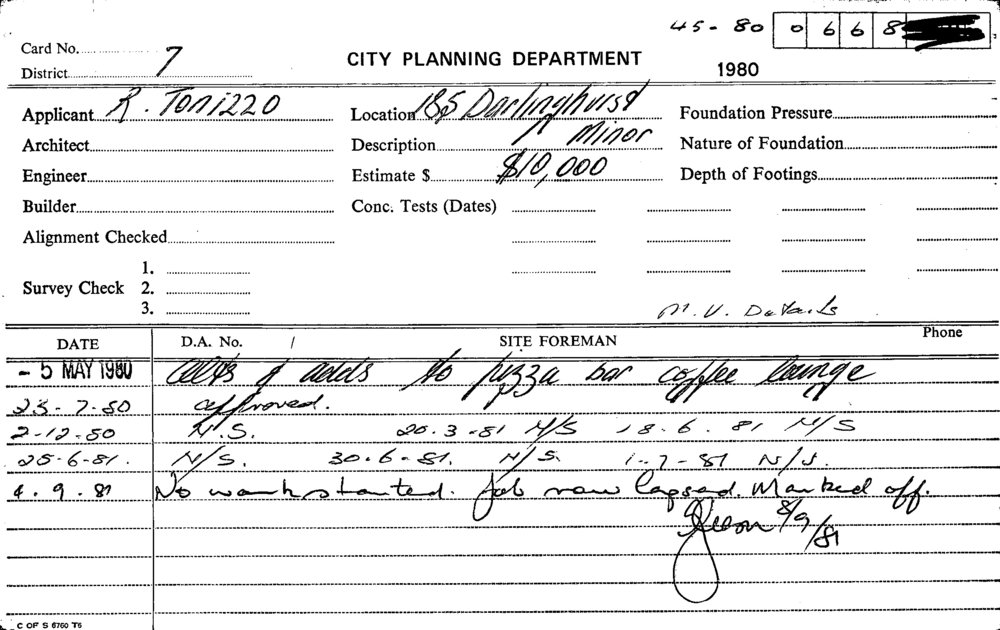 45-80 0668
Card No.
District 7
CITY PLANNING DEPARTMENT
1980
Applicant R. Tonizzo
Location 185 Darlinghurst
Foundation Pressure
Architect
Description Minor
Nature of Foundation
Engineer
Estimate $ $10,000
Depth of Footings
Builder
Conc. Tests (Dates)
Alignment Checked
1.
Survey Check 2.
3.
M.V. Details
DATE D.A. No. / SITE FOREMAN Phone
- 5 MAY 1980 Alts & adds to pizza bar coffee lounge
23-7-80 approved.
2-12-80 N.S. 20.3.81 N/S 18.6.81 N/S
25-6-81. N/S. 30.6.81. N/S. 1-7-81 N/S.
4.9.81 No work started. Job now lapsed. Marked off.
8/9/81
C OF S 6760 T6